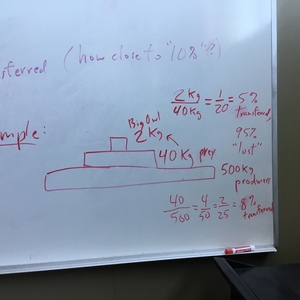 sferred (how close to "10%"?)
2 Kg / 40 Kg = 1/20 = 5% transferred,
95% "lost"
mple:
Big Owl
2 Kg
40 Kg prey
500 Kg producers
40/500 = 4/50 = 2/25 = 8% transferred